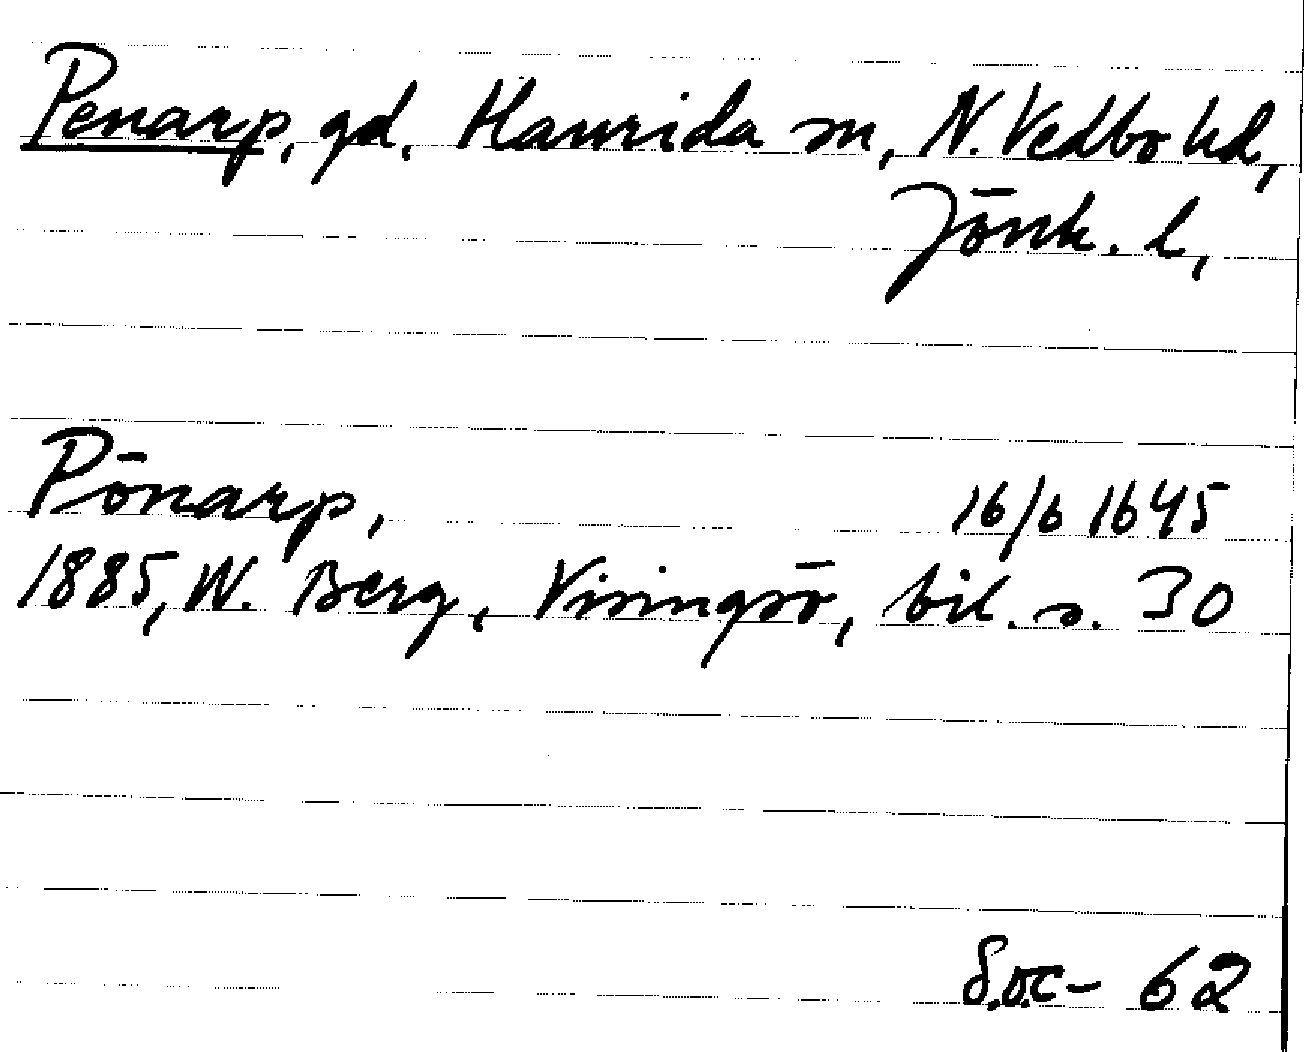 Penarp, gd, Haurida sn, N. Vedbo hd,
Jönk. l,
Pönarp, 16/6 1645
1885, W. Berg, Visingsö, bil. s. 30
62